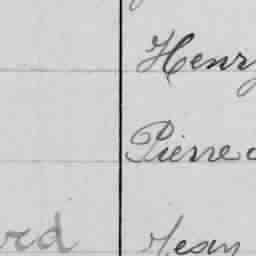 Henry
Pierre
rd Jean